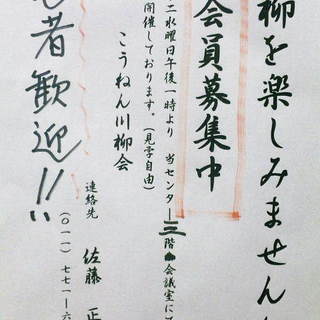 柳を楽しみません
会員募集中
二水曜日午後一時より 当センター三階会議室に
開催しております。(見学自由)
こうねん川柳会
者歓迎!!
連絡先 佐藤 正
(〇一一)七七一―六